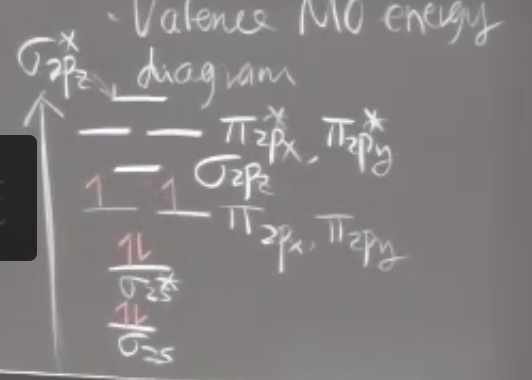 · Valence MO energy
diagram
σ*2pz
π*2px, π*2py
σ2pz
1 1
π2px, π2py
1L
σ2s*
1L
σ2s